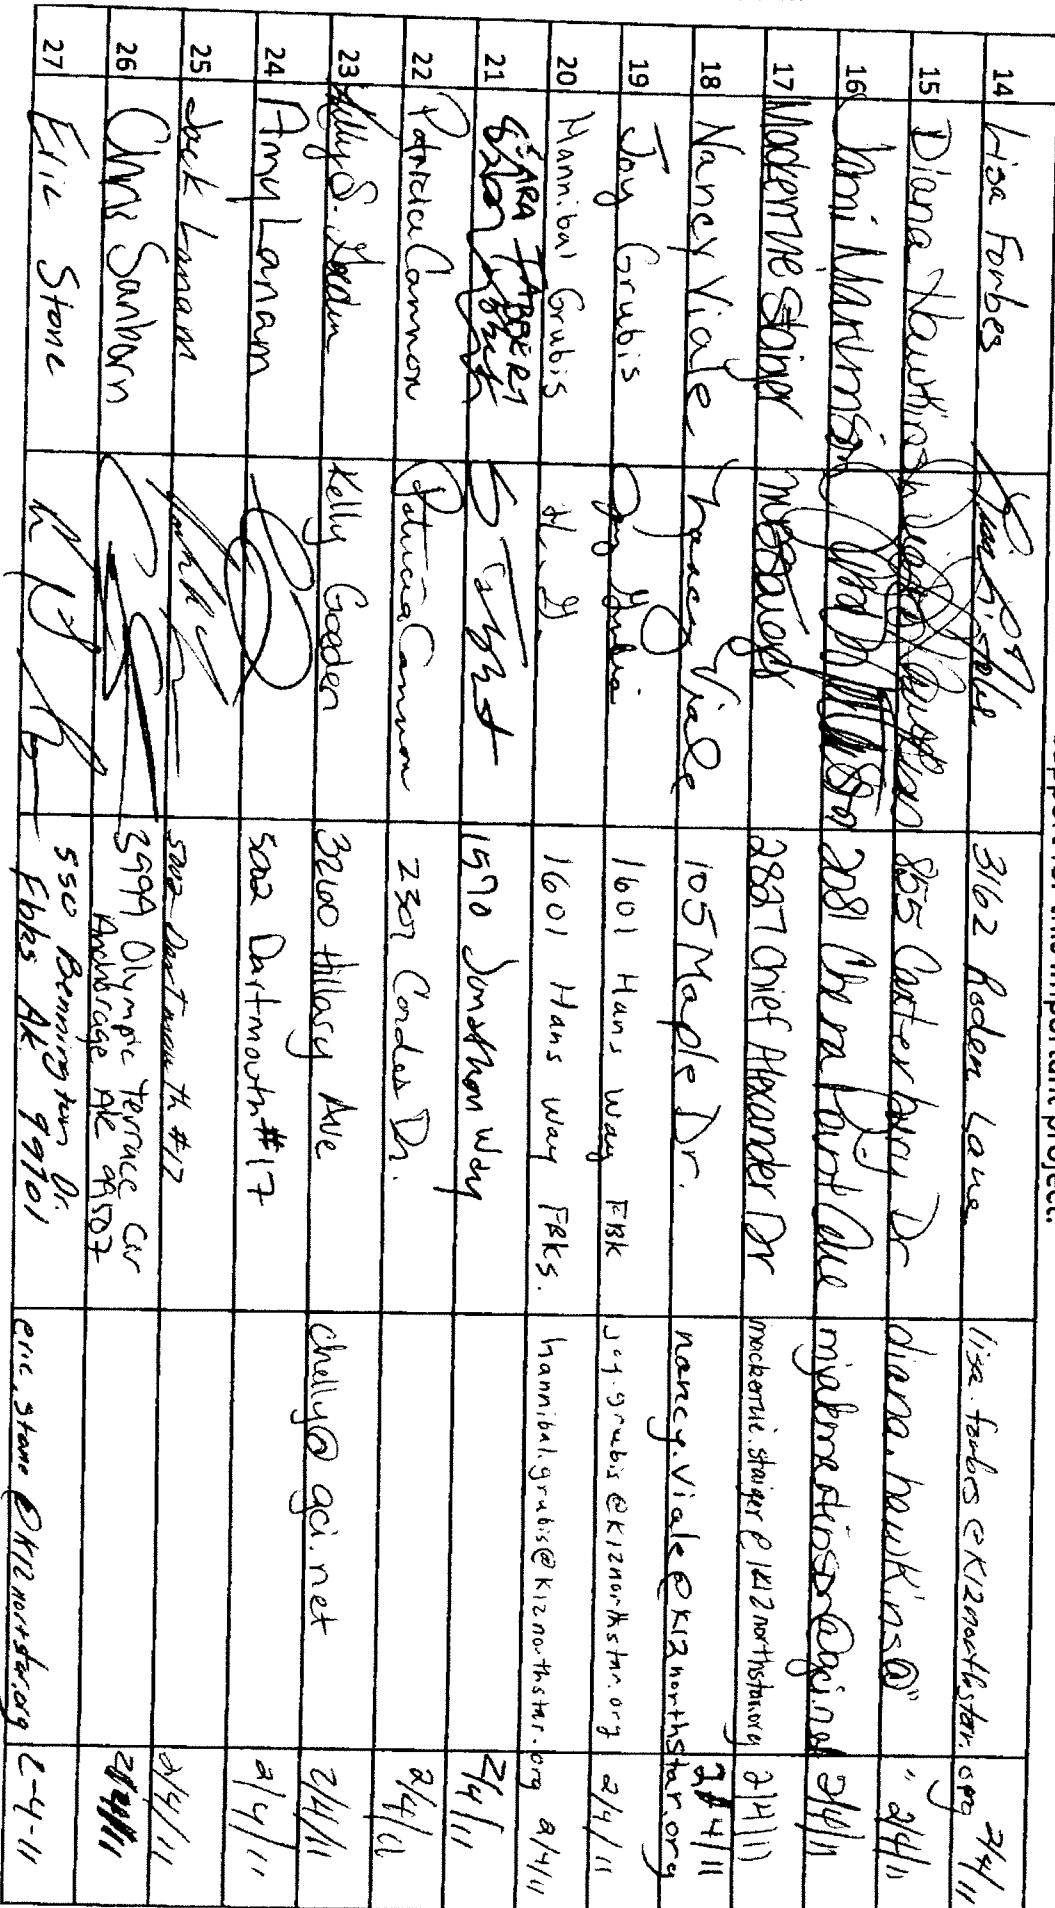 support for this important project.
14 Lisa Forbes 3162 Roden Lane lisa.forbes@k12northstar.org 2/4/11
15 Diana Hawkins 855 Carter Dr diana.hawkins@ " " 2/4/11
16 Jami 2081 Chena Point Ave 2/4/11
17 Mackenzie Staiger 2827 Chief Alexander Dr mackenzie.staiger@k12northstar.org 2/4/11
18 Nancy Viale Nancy Viale 105 Maple Dr. nancy.viale@k12northstar.org 2/4/11
19 Joy Grubis Joy Grubis 1601 Hans Way FBK joy.grubis@k12northstar.org 2/4/11
20 Hannibal Grubis H. G. 1601 Hans Way FBKs. hannibal.grubis@k12northstar.org 2/4/11
21 SARA TABBERT 1570 Jonathon Way 2/4/11
22 Patricia Cannon Patricia Cannon 2307 Cordes Dr. 2/4/11
23 Kelly S. Kelly Gooden 3260 Hillary Ave chelly@gci.net 2/4/11
24 Amy Lanam 5002 Dartmouth #17 2/4/11
25 Jack Lanam 5002 Dartmouth #17 2/4/11
26 Chris Sanborn 3999 Olympic Terrace Cir 2/4/11
Anchorage AK 99507
27 Eric Stone 550 Bennington Dr. eric.stone@k12northstar.org 2-4-11
Fbks AK 99701